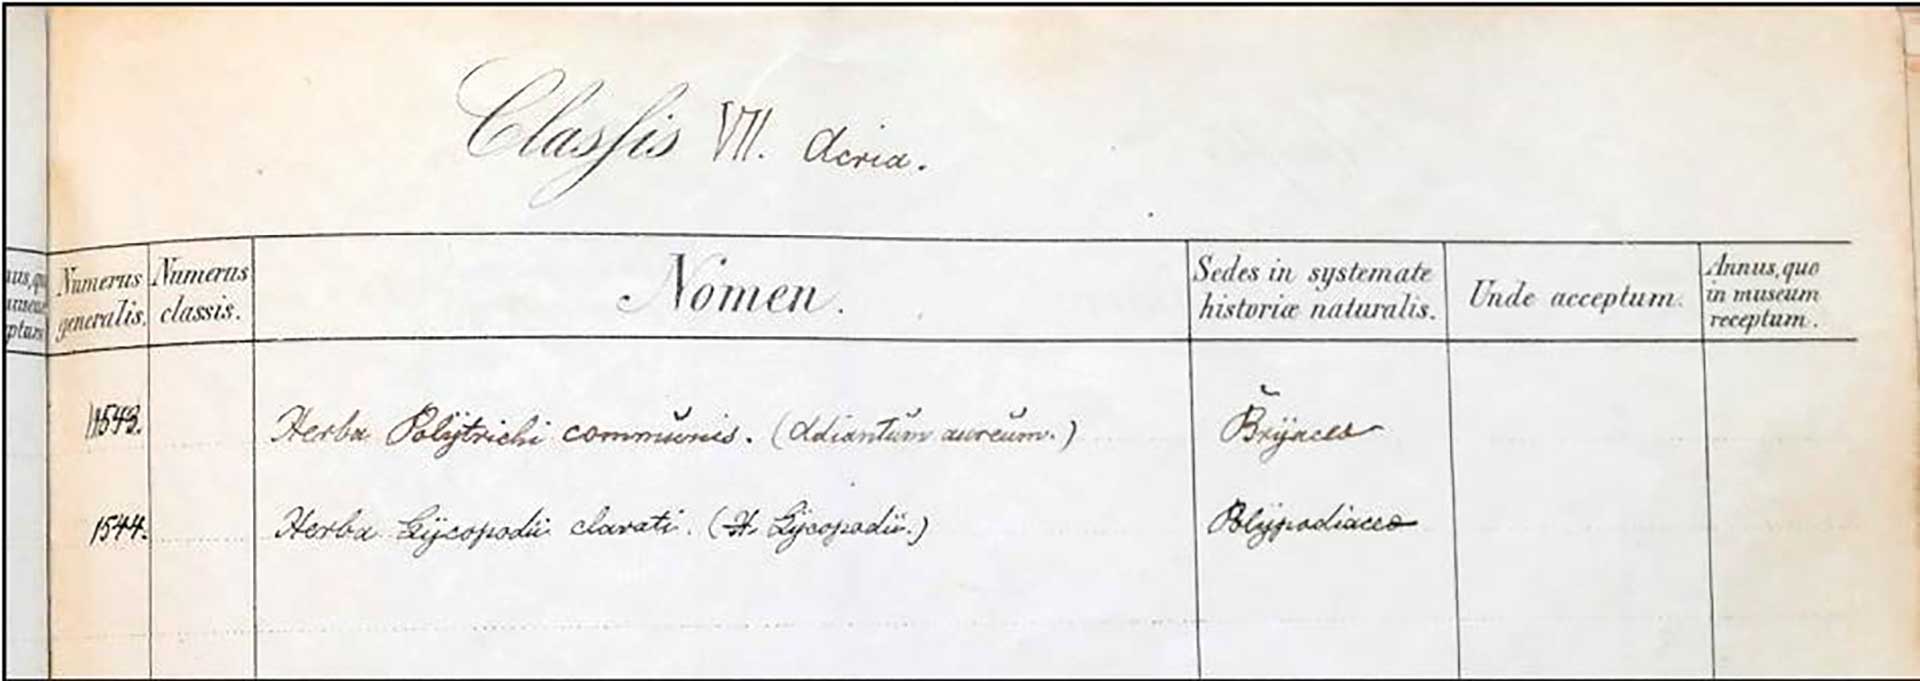 Classis VII. Acria.
nus, qu
museu
ptum
Numerus
generalis.
Numerus
classis.
Nomen.
Sedes in systemate
historiæ naturalis.
Unde acceptum.
Annus, quo
in museum
receptum.
1543. Herba Polÿtrichi communis. (Adiantum aureum.) Brÿaceo
1544. Herba Lÿcopodii clavati. (H. Lÿcopodii.) Polÿpodiaceo